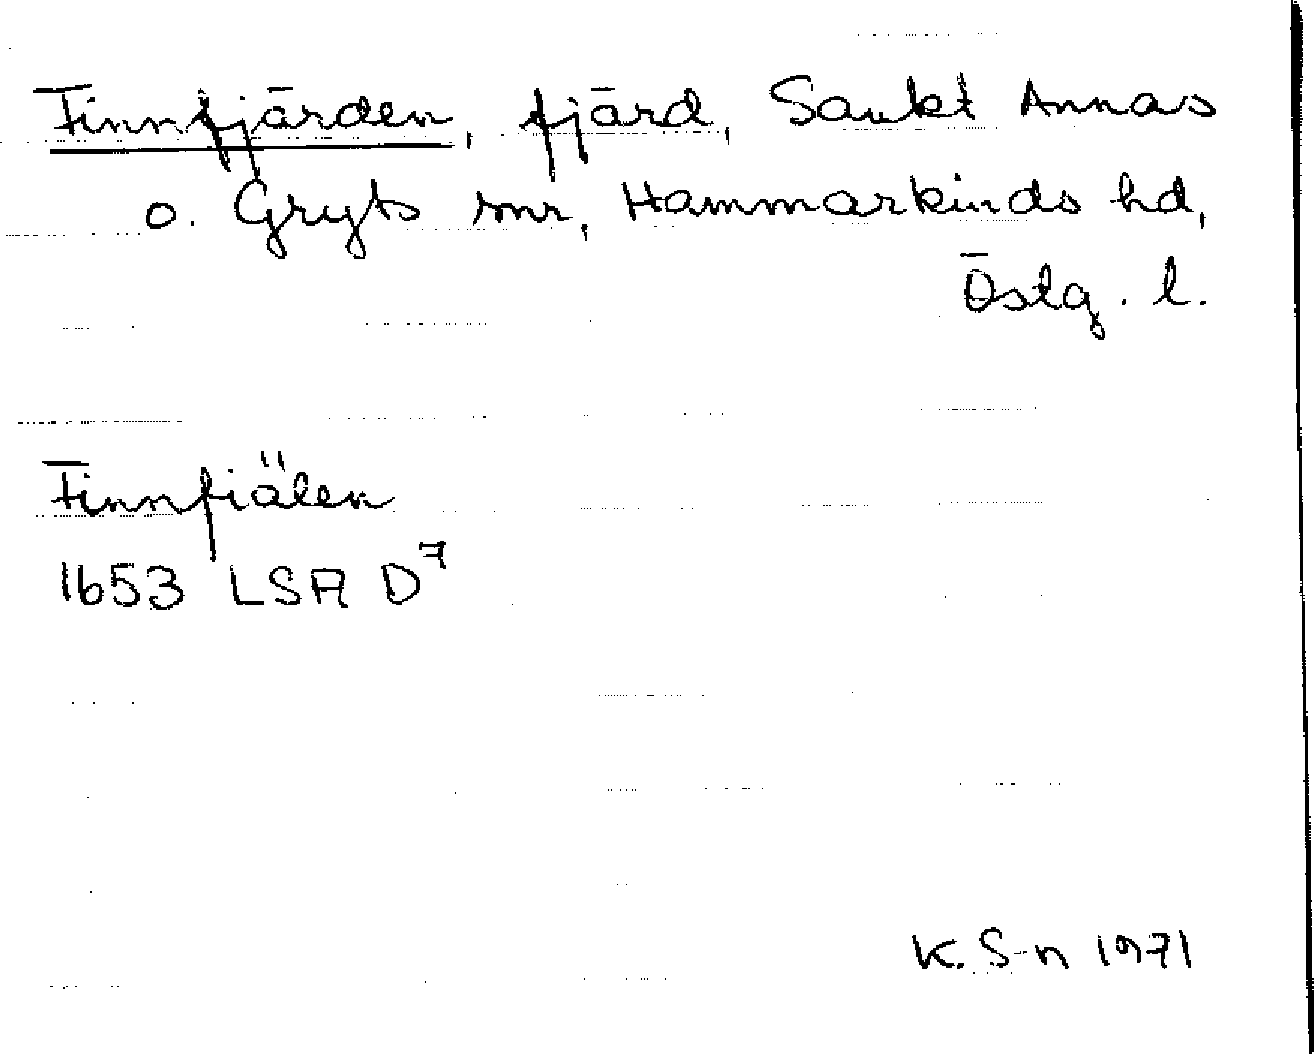 Finnfjärden, fjärd, Sankt Annas
o. Gryts snr, Hammarkinds hd,
Östg. l.
Finnfiälen
1653 LSA D⁷
K. S-n 1971